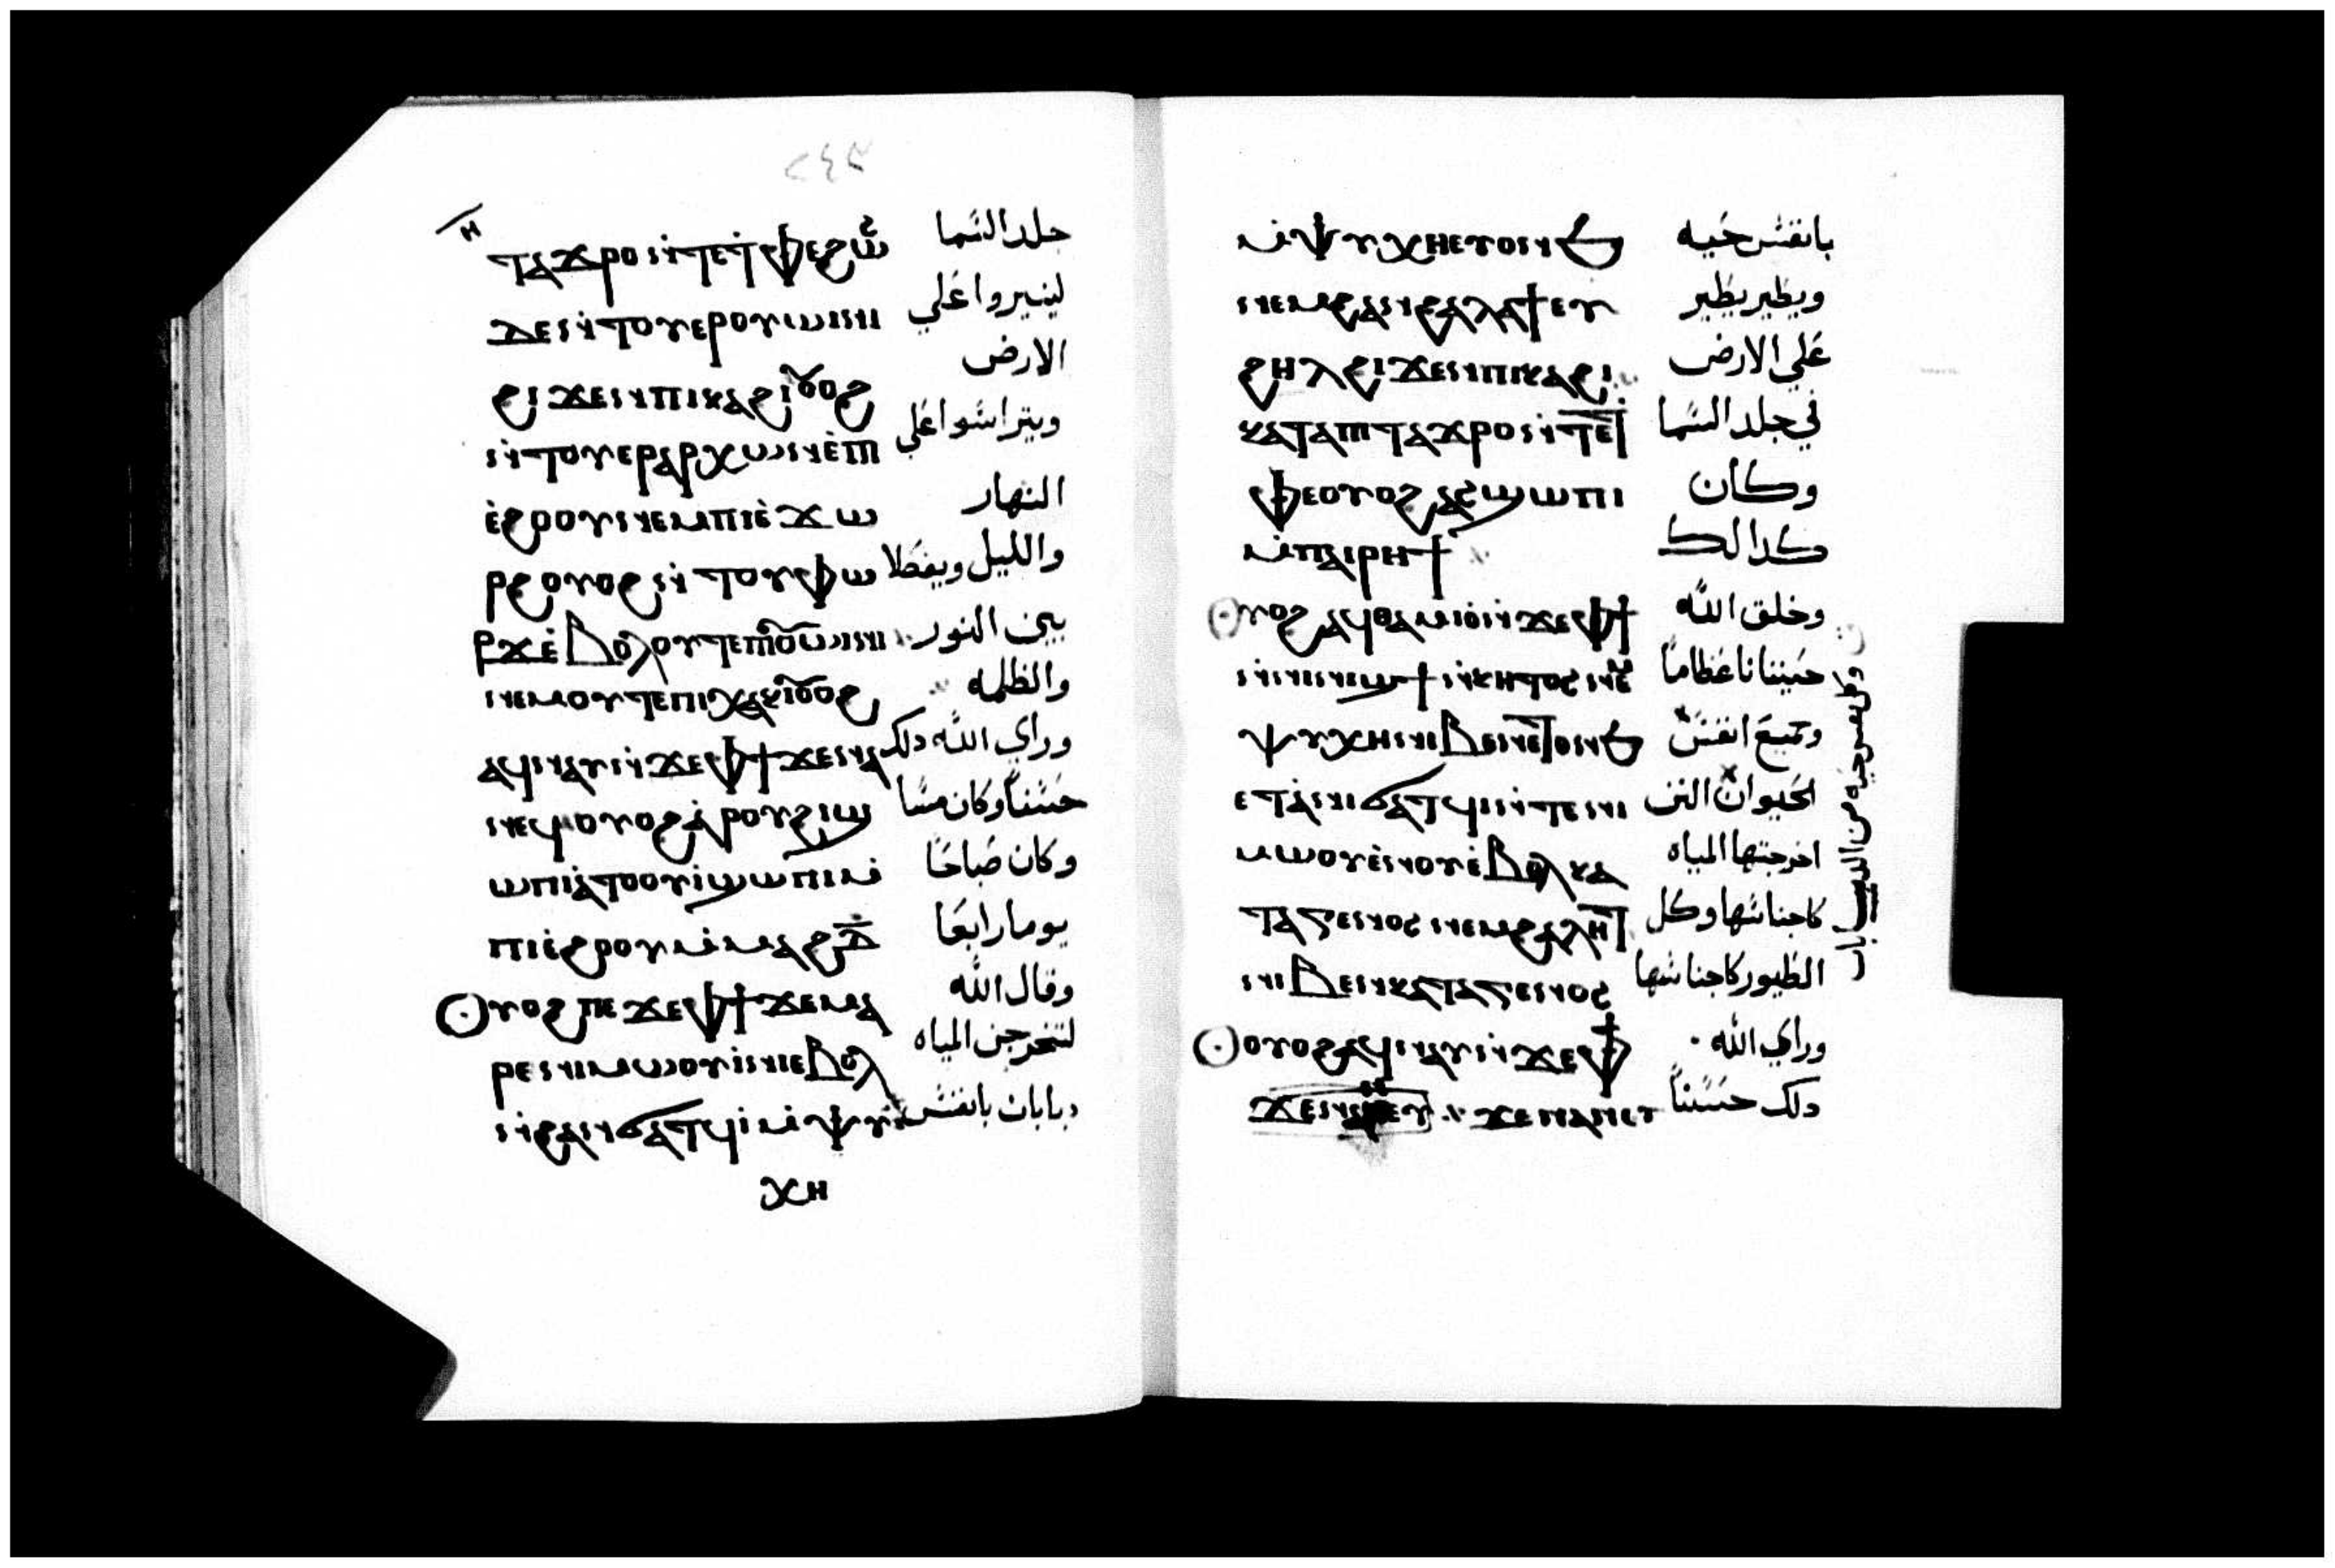 ٢٤٣
ⲏ
ⲧⲁϫⲣⲟ ⲛ̇ⲧⲉ ⲧ̇ⲫⲉ ϩⲱⲥ جلد السما
ⲇⲉ ⲛ̇ⲧⲟⲩⲉⲣⲟⲩⲱⲓⲛⲓ لينيروا علي
ϩⲓϫⲉⲛ ⲡⲓⲕⲁϩⲓ ⲟⲩⲟϩ الارض
ⲛ̇ⲧⲟⲩⲉⲣⲁⲣⲭⲱⲛ ⲉ̇ⲡⲓ ويتراسوا علي
ⲉ̇ϩⲟⲟⲩ ⲛⲉⲙ ⲡⲓⲉ̇ϫⲱ النهار
ⲣϩ ⲟⲩⲟϩ ⲛ̇ⲧⲟⲩⲫⲱ والليل ويفصلا
ⲣϫ ⲉ̇ⲃⲟⲗ ⲟⲩⲧⲉ ⲡⲓⲟⲩⲱⲓⲛⲓ بين النور
ⲛⲉⲙ ⲟⲩⲧⲉ ⲡⲓⲭⲁⲕⲓ ⲟⲩⲟϩ والظلمه
ⲁϥⲛⲁⲩ ⲛ̇ϫⲉ ⲫϯ ϫⲉ ⲛⲁ وراي الله دلك
ⲛⲉϥ ⲟⲩⲟϩ ⲁ̇ⲣⲟⲩϩⲓ ϣ حسنا وكان مسا
ⲱⲡⲓ ⲁ̇ⲧⲟⲟⲩⲓ̇ ϣⲱⲡⲓ ⲙ̇ وكان صباحا
ⲡⲓⲉ̇ϩⲟⲟⲩ ⲙ̇ⲙⲁϩⲇ̅ يوما رابعا
ⲟⲩⲟϩ ⲡⲉϫⲉ ⲫϯ ϫⲉ ⲙⲁ وقال الله
ⲣⲉ ⲛⲓⲙⲱⲟⲩ ⲓ̇ⲛⲓ ⲉⲃⲟⲗ لتخرجن المياه
ⲛ̇ϩⲁⲛϭⲁⲧϥⲓ ⲙ̇ⲯⲩ دبابات بانفس
ⲭⲏ
ⲙ̇ⲯⲩⲭⲏ ⲉⲩⲟⲛϧ بانفس حيه
ⲛⲉⲙ ϩⲁⲛϩⲁⲗⲁϯ ⲉⲩ ويطير يطير
ϩⲏⲗ ϩⲓϫⲉⲛ ⲡⲓⲕⲁϩⲓ علي الارض
ⲕⲁⲧⲁ ⲡⲓⲧⲁϫⲣⲟ ⲛ̇ⲧⲉ ⲧ̇ في جلد السما
ⲫⲉ ⲟⲩⲟϩ ⲁⲥϣⲱⲡⲓ وكان
ⲙ̇ⲡⲁⲓⲣⲏϯ كدالك
ⲟⲩⲟϩ ⲁϥⲑⲁⲙⲓⲟ̇ ⲛ̇ϫⲉ ⲫϯ وخلق الله
ⲛ̇ⲛⲓⲛⲓϣϯ ⲛ̇ⲕⲏⲧⲟⲥ ⲛⲉⲙ حيتانا عظاما
ⲯⲩⲭⲏ ⲛⲓⲃⲉⲛ ⲉⲧⲟⲛϧ وجميع انفس
ⲉⲧⲁ̇ ⲛⲓϭⲁⲧϥⲓ ⲛ̇ⲧⲉ ⲛⲓ الحيوان التي
ⲙⲱⲟⲩ ⲉ̇ⲛⲟⲩ ⲉ̇ⲃⲟⲗ ⲕⲁ اخرجتها المياه
ⲧⲁ ⲅⲉⲛⲟⲥ ⲛⲉⲙ ϩⲁⲗⲏⲧ كاجناسها وكل
ⲛⲓⲃⲉⲛ ⲕⲁⲧⲁ ⲅⲉⲛⲟⲥ الطيور كاجناسها
ⲟⲩⲟϩ ⲁϥⲛⲁⲩ ⲛ̇ϫⲉ ⲫϯ وراي الله
ϫⲉ ⲛⲁⲛⲉⲩ دلك حسنا
وكل نفس حيه من